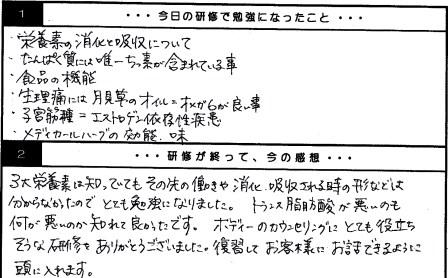 1 ・・・ 今日の研修で勉強になったこと ・・・
・栄養素の消化と吸収について
・たんぱく質には唯一ちっ素が含まれている事
・食品の機能
・生理痛には月見草のオイル=オメガ6が良い事
・子宮筋腫=エストロゲン依存性疾患
・メディカールハーブの効能、味
2 ・・・ 研修が終って、今の感想 ・・・
3大栄養素は知っていてもその先の働きや消化、吸収される時の形などは
分からなかったのでとても勉強になりました。トランス脂肪酸が悪いのも
何が悪いのか知れて良かったです。ボディーのカウンセリングにとても役立ち
そうな研修をありがとうございました。復習してお客様にお話できるように
頭に入れます。